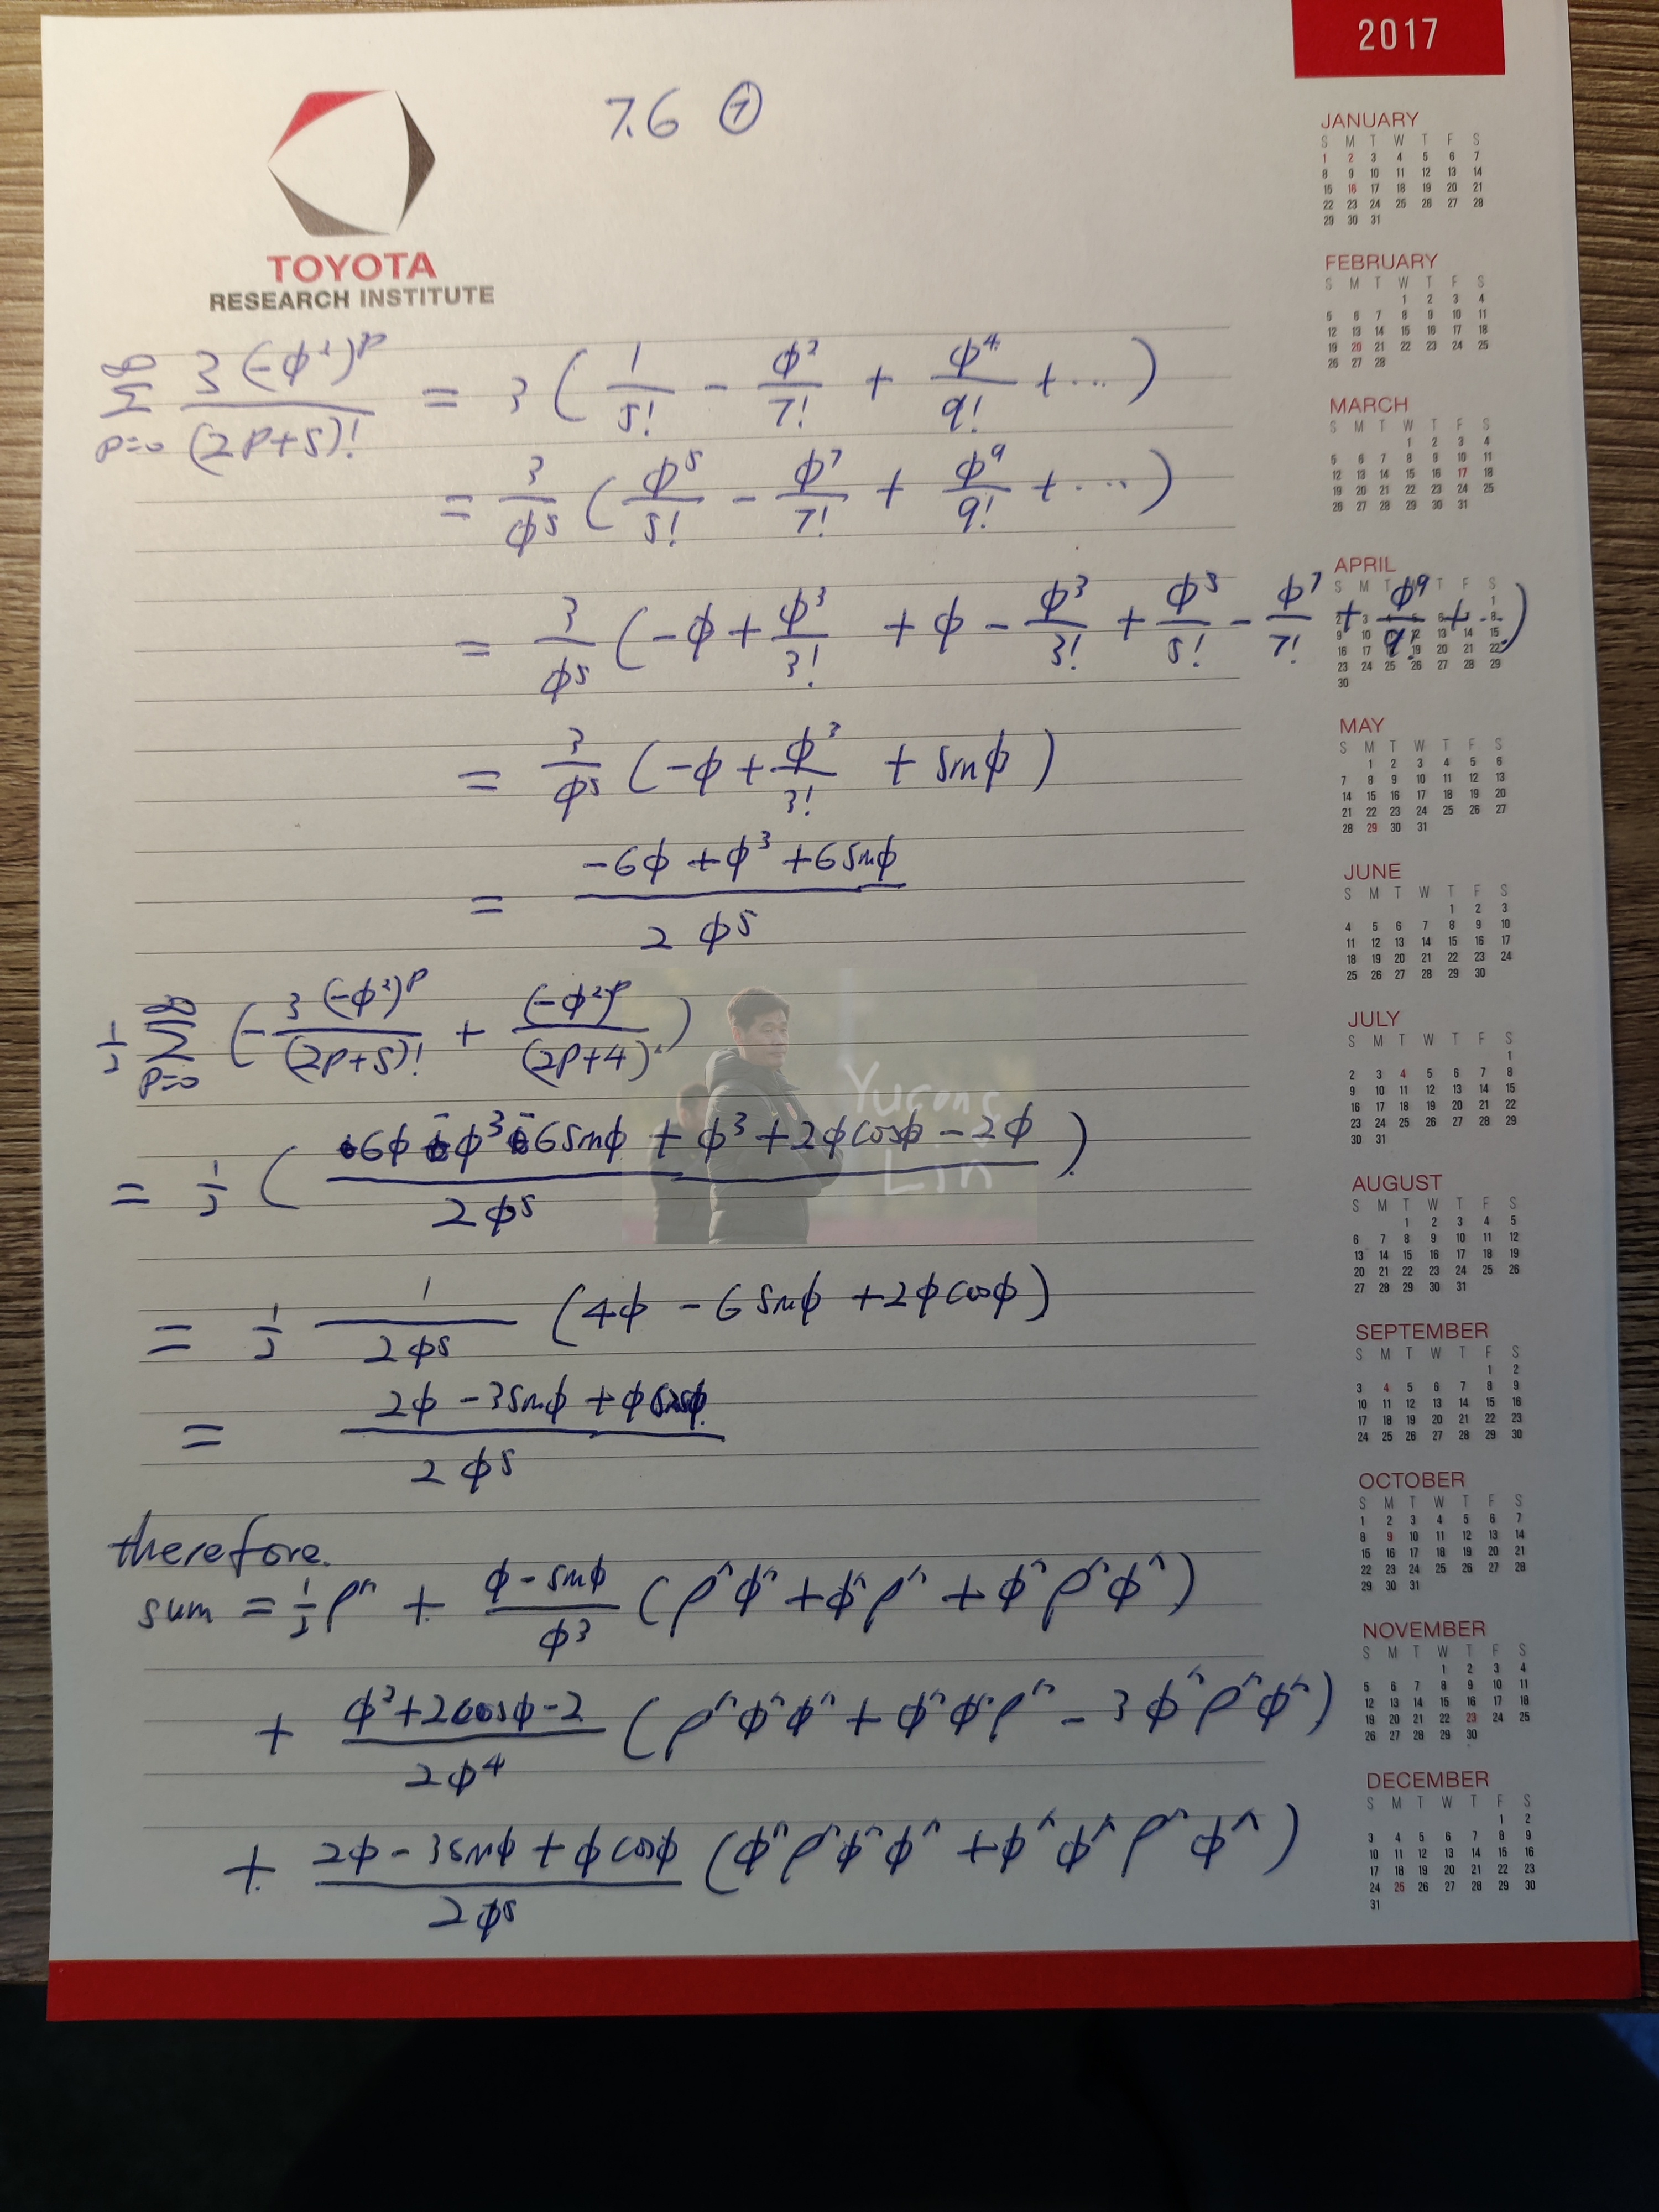 2017
7.6 ⑦
TOYOTA
RESEARCH INSTITUTE
∞
Σ 3(-ϕ²)^p / (2p+5)! = 3 ( 1/5! - ϕ²/7! + ϕ⁴/9! + ... )
p=0
= 3/ϕ⁵ ( ϕ⁵/5! - ϕ⁷/7! + ϕ⁹/9! + ... )
= 3/ϕ⁵ ( -ϕ + ϕ³/3! + ϕ - ϕ³/3! + ϕ⁵/5! - ϕ⁷/7! + ϕ⁹/9! + ... )
= 3/ϕ⁵ ( -ϕ + ϕ³/3! + sinϕ )
= (-6ϕ + ϕ³ + 6sinϕ) / 2ϕ⁵
½ Σ_{p=0}^∞ ( - 3(-ϕ²)^p / (2p+5)! + (-ϕ²)^p / (2p+4)! )
= ½ ( (6ϕ - ϕ³ - 6sinϕ + ϕ³ + 2ϕcosϕ - 2ϕ) / 2ϕ⁵ )
= ½ 1/2ϕ⁵ (4ϕ - 6sinϕ + 2ϕcosϕ)
= (2ϕ - 3sinϕ + ϕcosϕ) / 2ϕ⁵
therefore.
sum = ½ρ^ + (ϕ - sinϕ)/ϕ³ (ρ^ϕ^ + ϕ^ρ^ + ϕ^ρ^ϕ^)
+ (ϕ² + 2cosϕ - 2)/2ϕ⁴ (ρ^ϕ^ϕ^ + ϕ^ϕ^ρ^ - 3ϕ^ρ^ϕ^)
+ (2ϕ - 3sinϕ + ϕcosϕ)/2ϕ⁵ (ϕ^ρ^ϕ^ϕ^ + ϕ^ϕ^ρ^ϕ^)
Yucong
Lin
JANUARY
S M T W T F S
1 2 3 4 5 6 7
8 9 10 11 12 13 14
15 16 17 18 19 20 21
22 23 24 25 26 27 28
29 30 31
FEBRUARY
S M T W T F S
1 2 3 4
5 6 7 8 9 10 11
12 13 14 15 16 17 18
19 20 21 22 23 24 25
26 27 28
MARCH
S M T W T F S
1 2 3 4
5 6 7 8 9 10 11
12 13 14 15 16 17 18
19 20 21 22 23 24 25
26 27 28 29 30 31
APRIL
S M T T F S
1
2 3 6 8
9 10 12 13 14 15
16 17 19 20 21 22
23 24 25 26 27 28 29
30
MAY
S M T W T F S
1 2 3 4 5 6
7 8 9 10 11 12 13
14 15 16 17 18 19 20
21 22 23 24 25 26 27
28 29 30 31
JUNE
S M T W T F S
1 2 3
4 5 6 7 8 9 10
11 12 13 14 15 16 17
18 19 20 21 22 23 24
25 26 27 28 29 30
JULY
S M T W T F S
1
2 3 4 5 6 7 8
9 10 11 12 13 14 15
16 17 18 19 20 21 22
23 24 25 26 27 28 29
30 31
AUGUST
S M T W T F S
1 2 3 4 5
6 7 8 9 10 11 12
13 14 15 16 17 18 19
20 21 22 23 24 25 26
27 28 29 30 31
SEPTEMBER
S M T W T F S
1 2
3 4 5 6 7 8 9
10 11 12 13 14 15 16
17 18 19 20 21 22 23
24 25 26 27 28 29 30
OCTOBER
S M T W T F S
1 2 3 4 5 6 7
8 9 10 11 12 13 14
15 16 17 18 19 20 21
22 23 24 25 26 27 28
29 30 31
NOVEMBER
S M T W T F S
1 2 3 4
5 6 7 8 9 10 11
12 13 14 15 16 17 18
19 20 21 22 23 24 25
26 27 28 29 30
DECEMBER
S M T W T F S
1 2
3 4 5 6 7 8 9
10 11 12 13 14 15 16
17 18 19 20 21 22 23
24 25 26 27 28 29 30
31